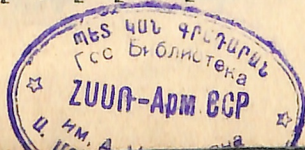 ՊԵՏ ԿԱՆ ԳՐԱԴԱՐԱՆ
Гсс Библиотека
ՀՍՍՌ-Арм. ССР
им. А.
Ա.